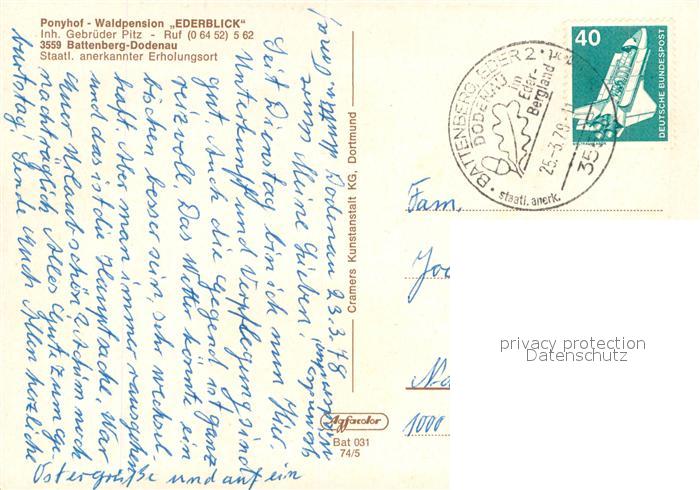 Ponyhof - Waldpension „EDERBLICK“
Inh. Gebrüder Pitz - Ruf (0 64 52) 5 62
3559 Battenberg-Dodenau
Staatl. anerkannter Erholungsort
Dodenau 23.3.78
Meine Lieben!
Seit Dienstag bin ich nun hier.
Unterkunft und Verpflegung sind
gut. Auch die Gegend ist ganz
reizvoll. Das Wetter könnte ein
bischen besser sein, sehr wechsel-
haft. Aber man immer rausgehen
und das ist die Hauptsache. War
Euer Urlaub schön? Achim noch
nachträglich Alles Gute zum Ge-
burtstag! Sende Euch Allen herzliche
Ostergrüße und auf ein
Wiedersehen
Cramers Kunstanstalt KG, Dortmund
Agfacolor
Bat 031
74/5
40
DEUTSCHE BUNDESPOST
BATTENBERG, EDER 2
DODENAU
im
Eder-
Bergland
25.-3.78
staatl. anerk.
Fam.
1000
privacy protection
Datenschutz